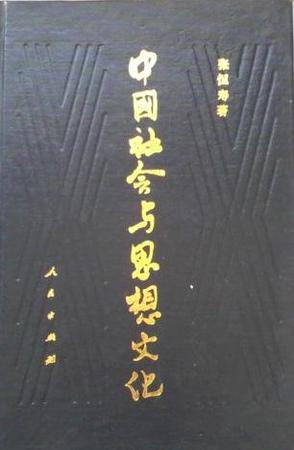 张恒寿著
中國社会与思想文化
人民出版社